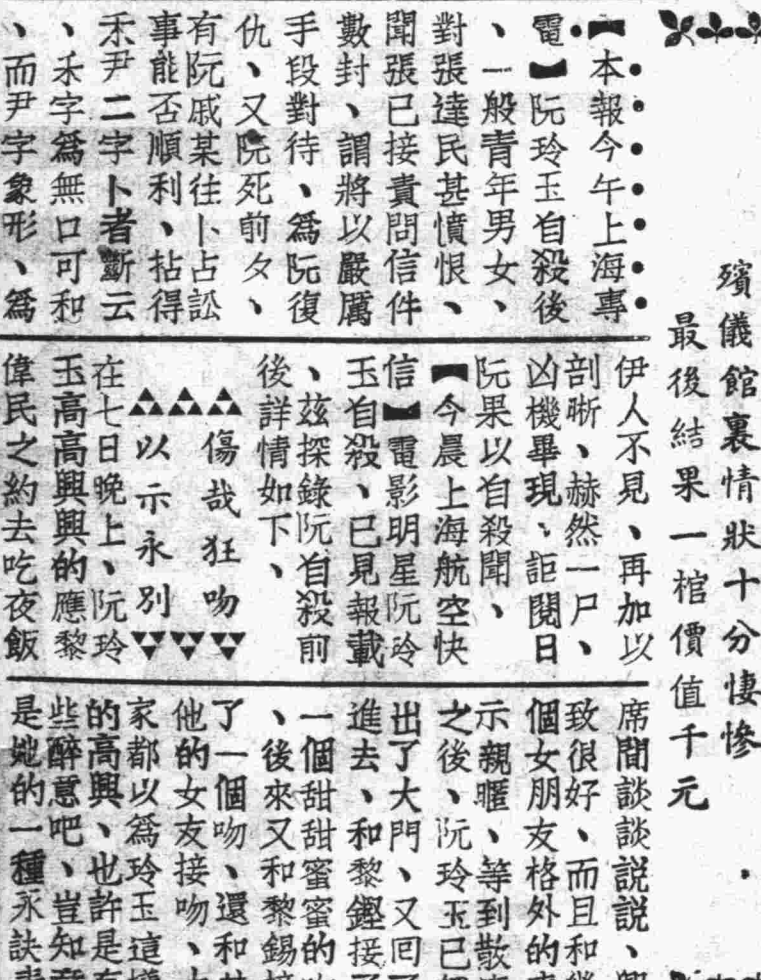 殯儀館裏情狀十分悽慘
最後結果一棺價值千元
【本報今午上海專
電】阮玲玉自殺後
、一般青年男女、
對張達民甚憤恨、
聞張已接責問信件
數封、謂將以嚴厲
手段對待、爲阮復
仇、又阮死前夕、
有阮戚某往卜占訟
事能否順利、拈得
禾尹二字卜者斷云
、禾字爲無口可和
、而尹字象形、爲
伊人不見、再加以
剖晰、赫然一尸、
凶機畢現、詎閱日
阮果以自殺聞、
【今晨上海航空快
信】電影明星阮玲
玉自殺、已見報載
、茲探錄阮自殺前
後詳情如下、
傷哉狂吻
以示永別
在七日晚上、阮玲
玉高高興興的應黎
偉民之約去吃夜飯
席間談談説説、
致很好、而且和
個女朋友格外的
示親暱、等到散
之後、阮玲玉已
出了大門、又回
進去、和黎鏗接
一個甜甜蜜蜜的
、後來又和黎錫
了一個吻、還和
他的女友接吻、
家都以爲玲玉這
的高興、也許是
些醉意吧、豈知
是她的一種永訣